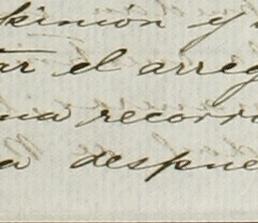 kinión y
ar el arreg
ua recorri
a despue